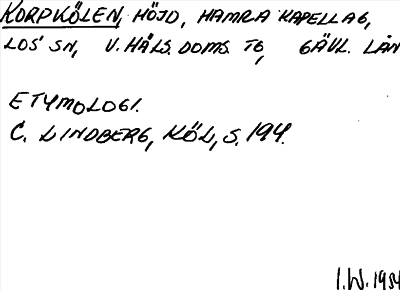 KORPKÖLEN, HÖJD, HAMRA KAPELLAG,
LOS' SN, V. HÄLS. DOMS. TG, GÄVL. LÄN
ETYMOLOGI.
C. LINDBERG, KÖL, S. 194.
I.W. 1984